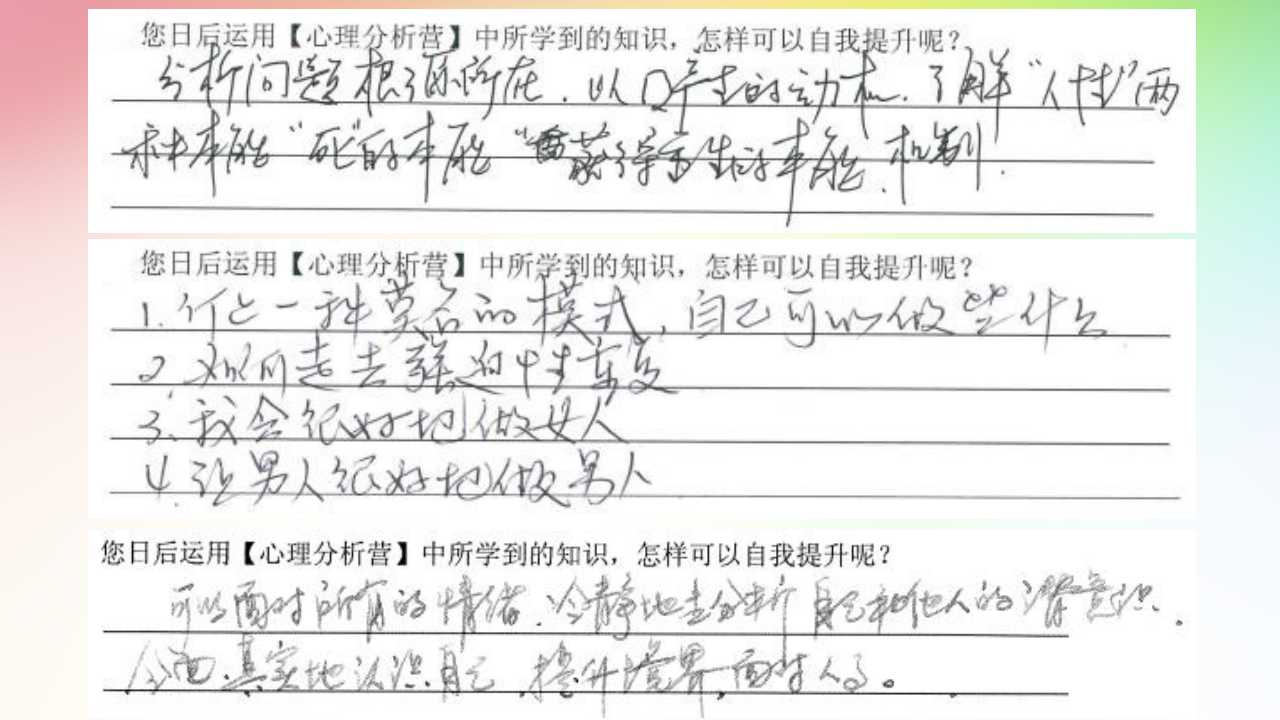 您日后运用【心理分析营】中所学到的知识，怎样可以自我提升呢？
分析问题根源所在．以产生的动机．了解“人性”两
种本能“死”的本能 生的本能．机制．
您日后运用【心理分析营】中所学到的知识，怎样可以自我提升呢？
1. 一种 的模式，自己可以做些什么
2. 如何走去强迫性重复
3、我会很好地做女人
4. 让男人很好地做男人
您日后运用【心理分析营】中所学到的知识，怎样可以自我提升呢？
可以面对所有的情绪．冷静地去分析自己和他人的潜意识．
全面．真实地认识自己．提升境界．面对人